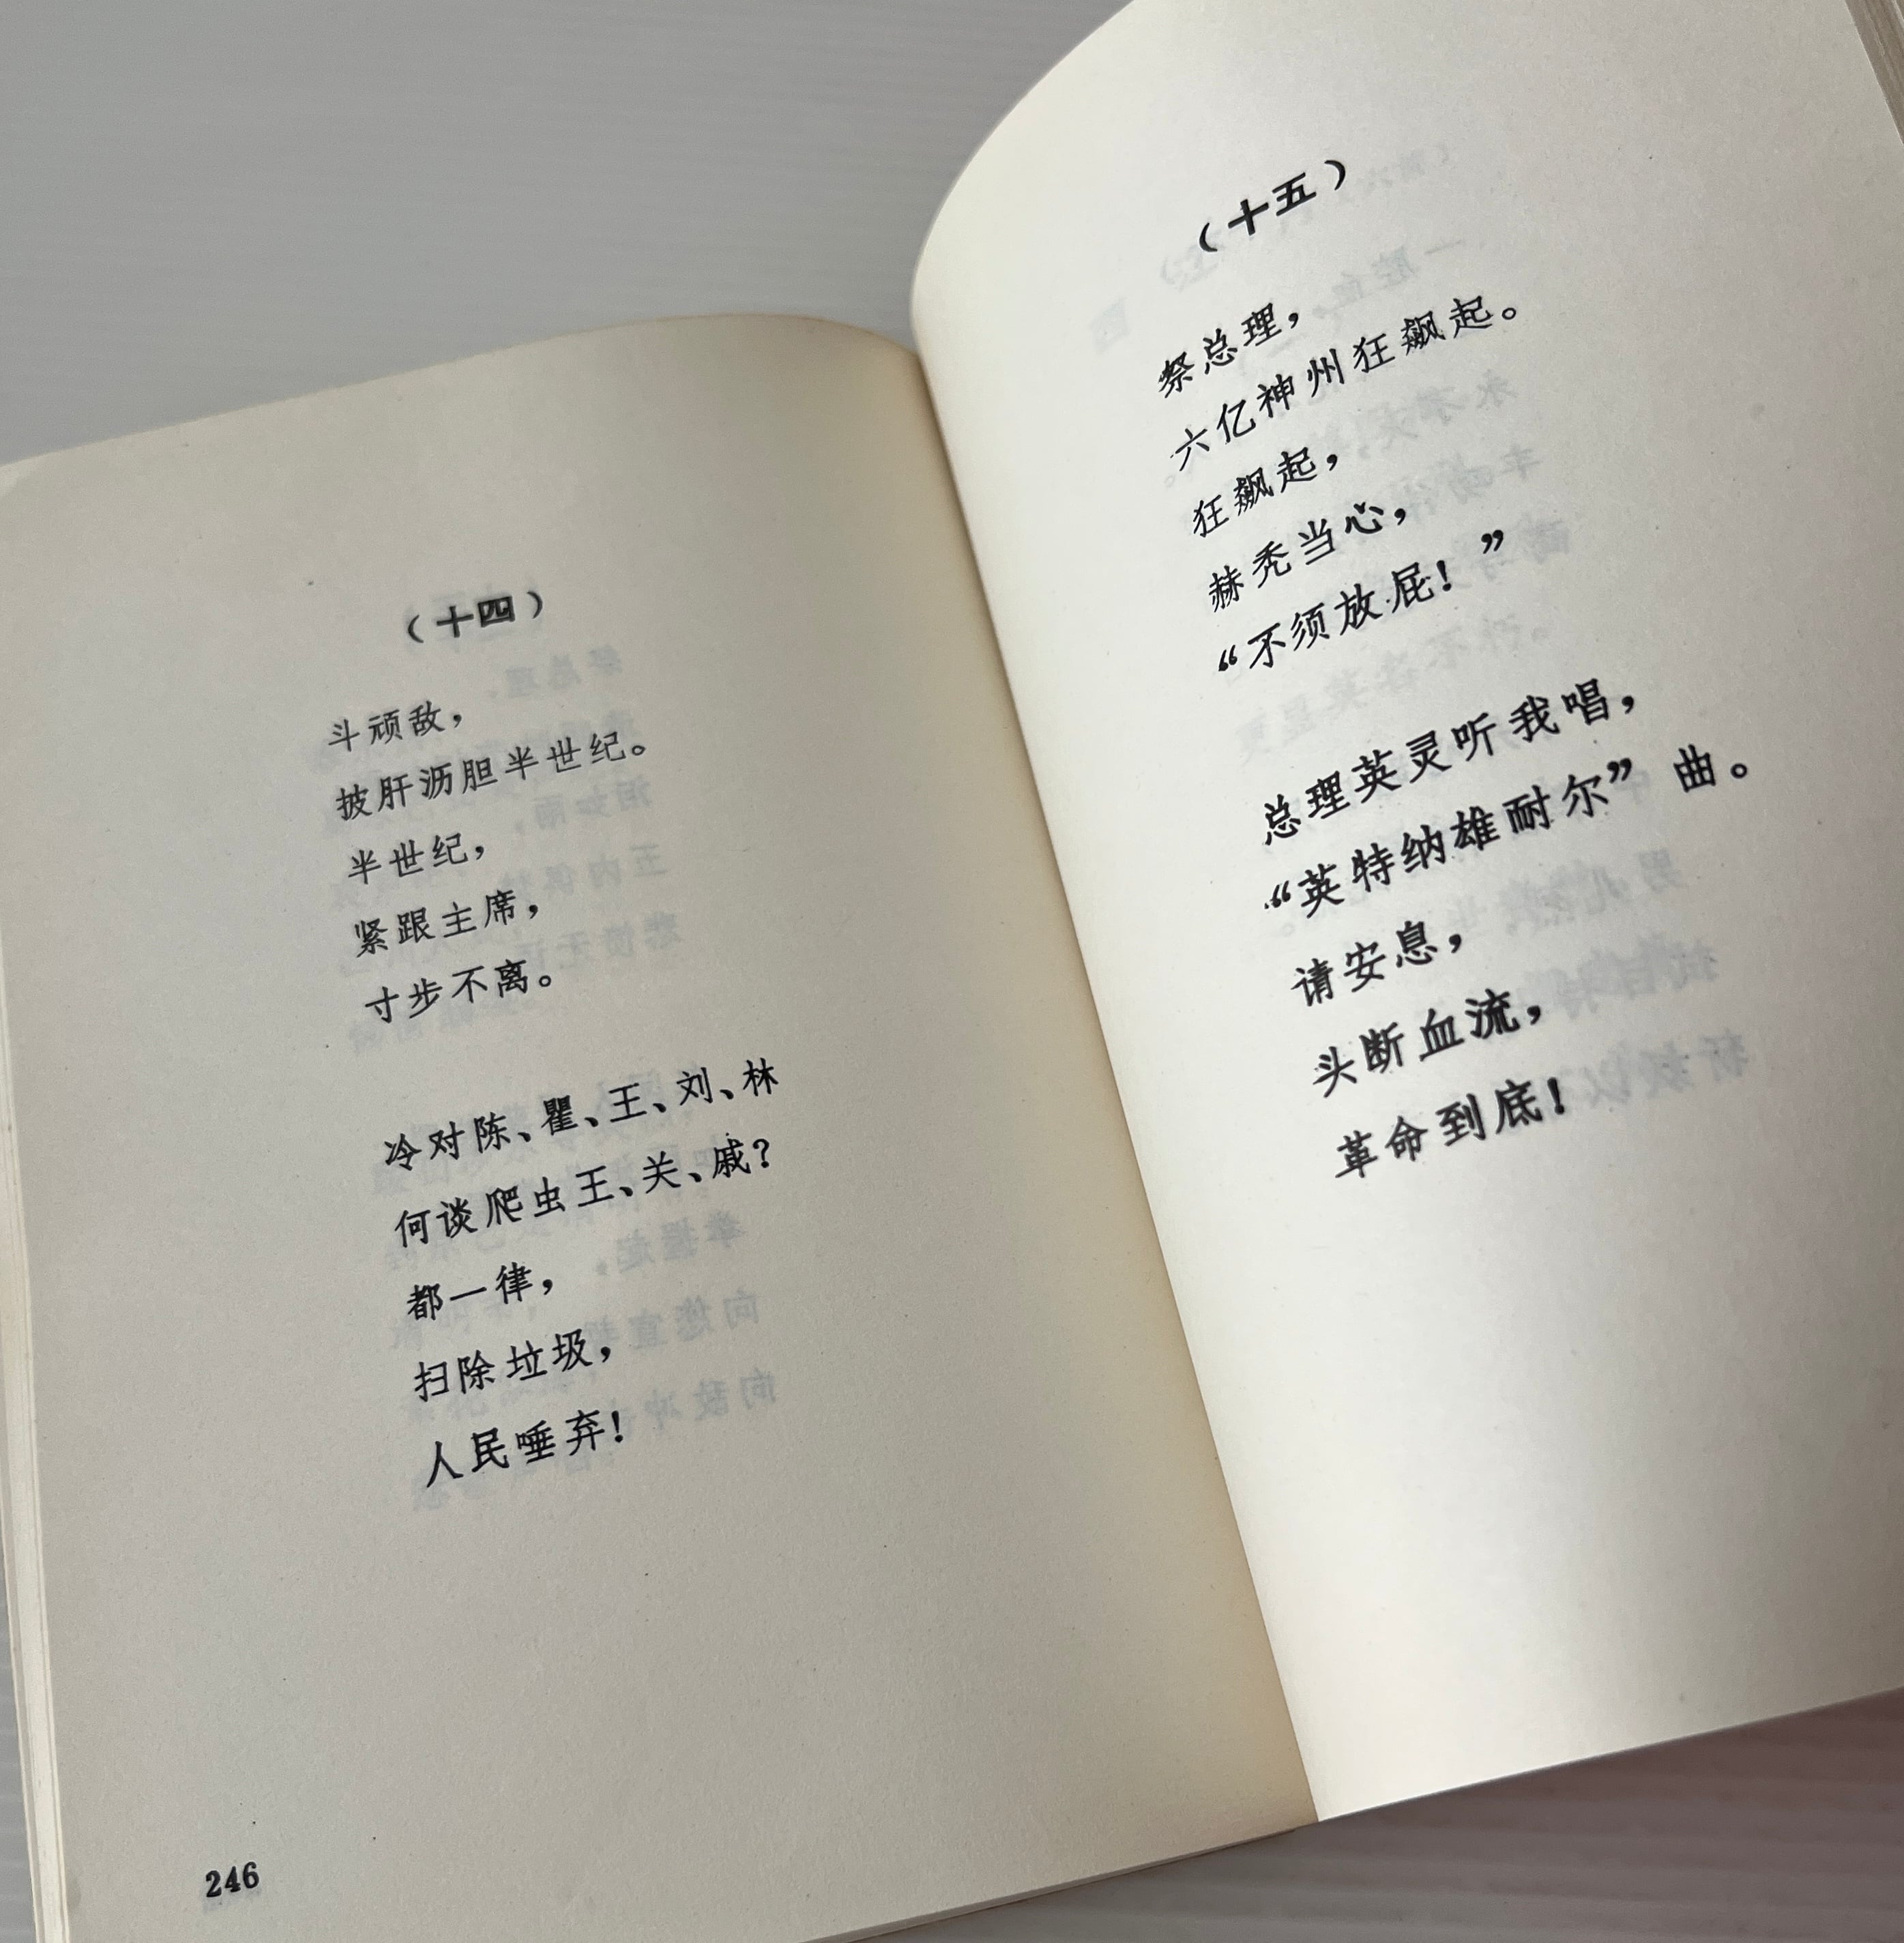 (十四)
斗顽敌,
披肝沥胆半世纪。
半世纪,
紧跟主席,
寸步不离。
冷对陈、瞿、王、刘、林
何谈爬虫王、关、戚?
都一律,
扫除垃圾,
人民唾弃!
246
(十五)
祭总理,
六亿神州狂飙起。
狂飙起,
赫秃当心,
“不须放屁!”
总理英灵听我唱,
“英特纳雄耐尔”曲。
请安息,
头断血流,
革命到底!